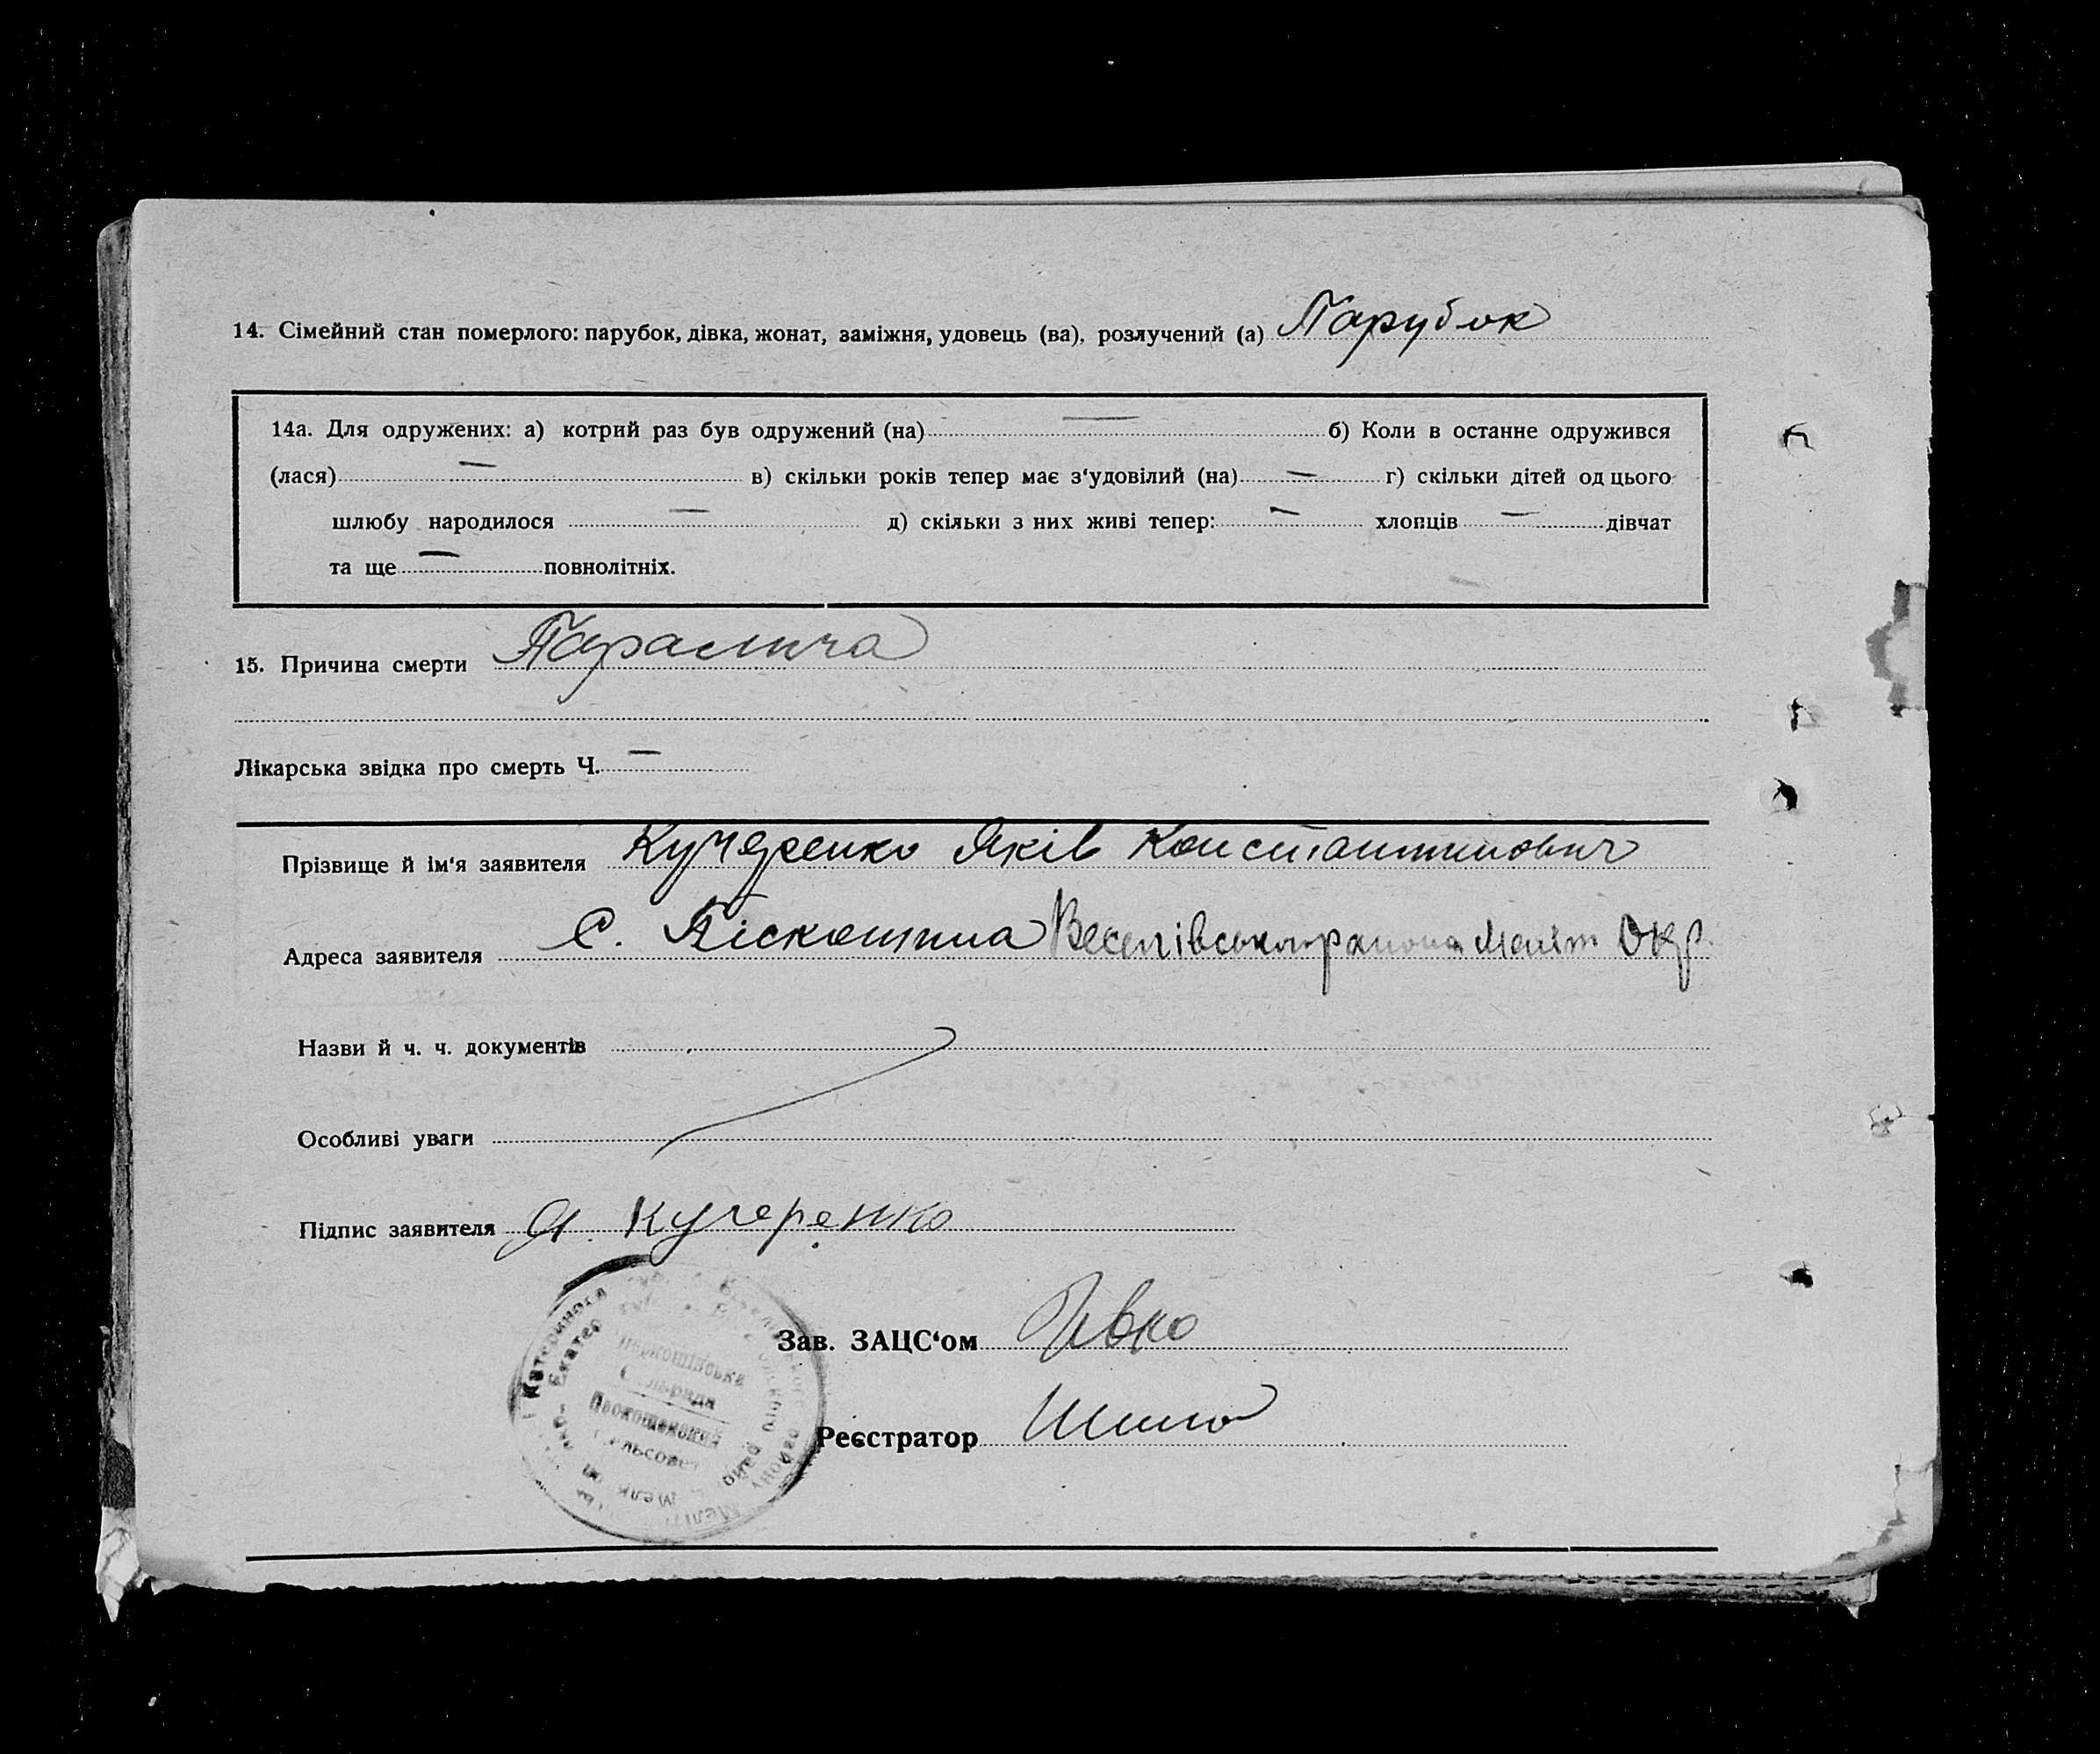 14. Сімейний стан померлого: парубок, дівка, жонат, заміжня, удовець (ва), розлучений (а) Парубок
14а. Для одружених: а) котрий раз був одружений (на) — б) Коли в останнє одружився
(лася) — в) скільки років тепер має з‘удовілий (на) — г) скільки дітей од цього
шлюбу народилося — д) скільки з них живі тепер: — хлопців — дівчат
та ще — повнолітніх.
15. Причина смерти Паралича
Лікарська звідка про смерть Ч. —
Прізвище й ім‘я заявителя Кучеренко Яків Константинович
Адреса заявителя С. Піскошина Веселівського района Меліт Окр.
Назви й ч. ч. документів
Особливі уваги
Підпис заявителя Я. Кучеренко
Зав. ЗАЦС‘ом
Реєстратор